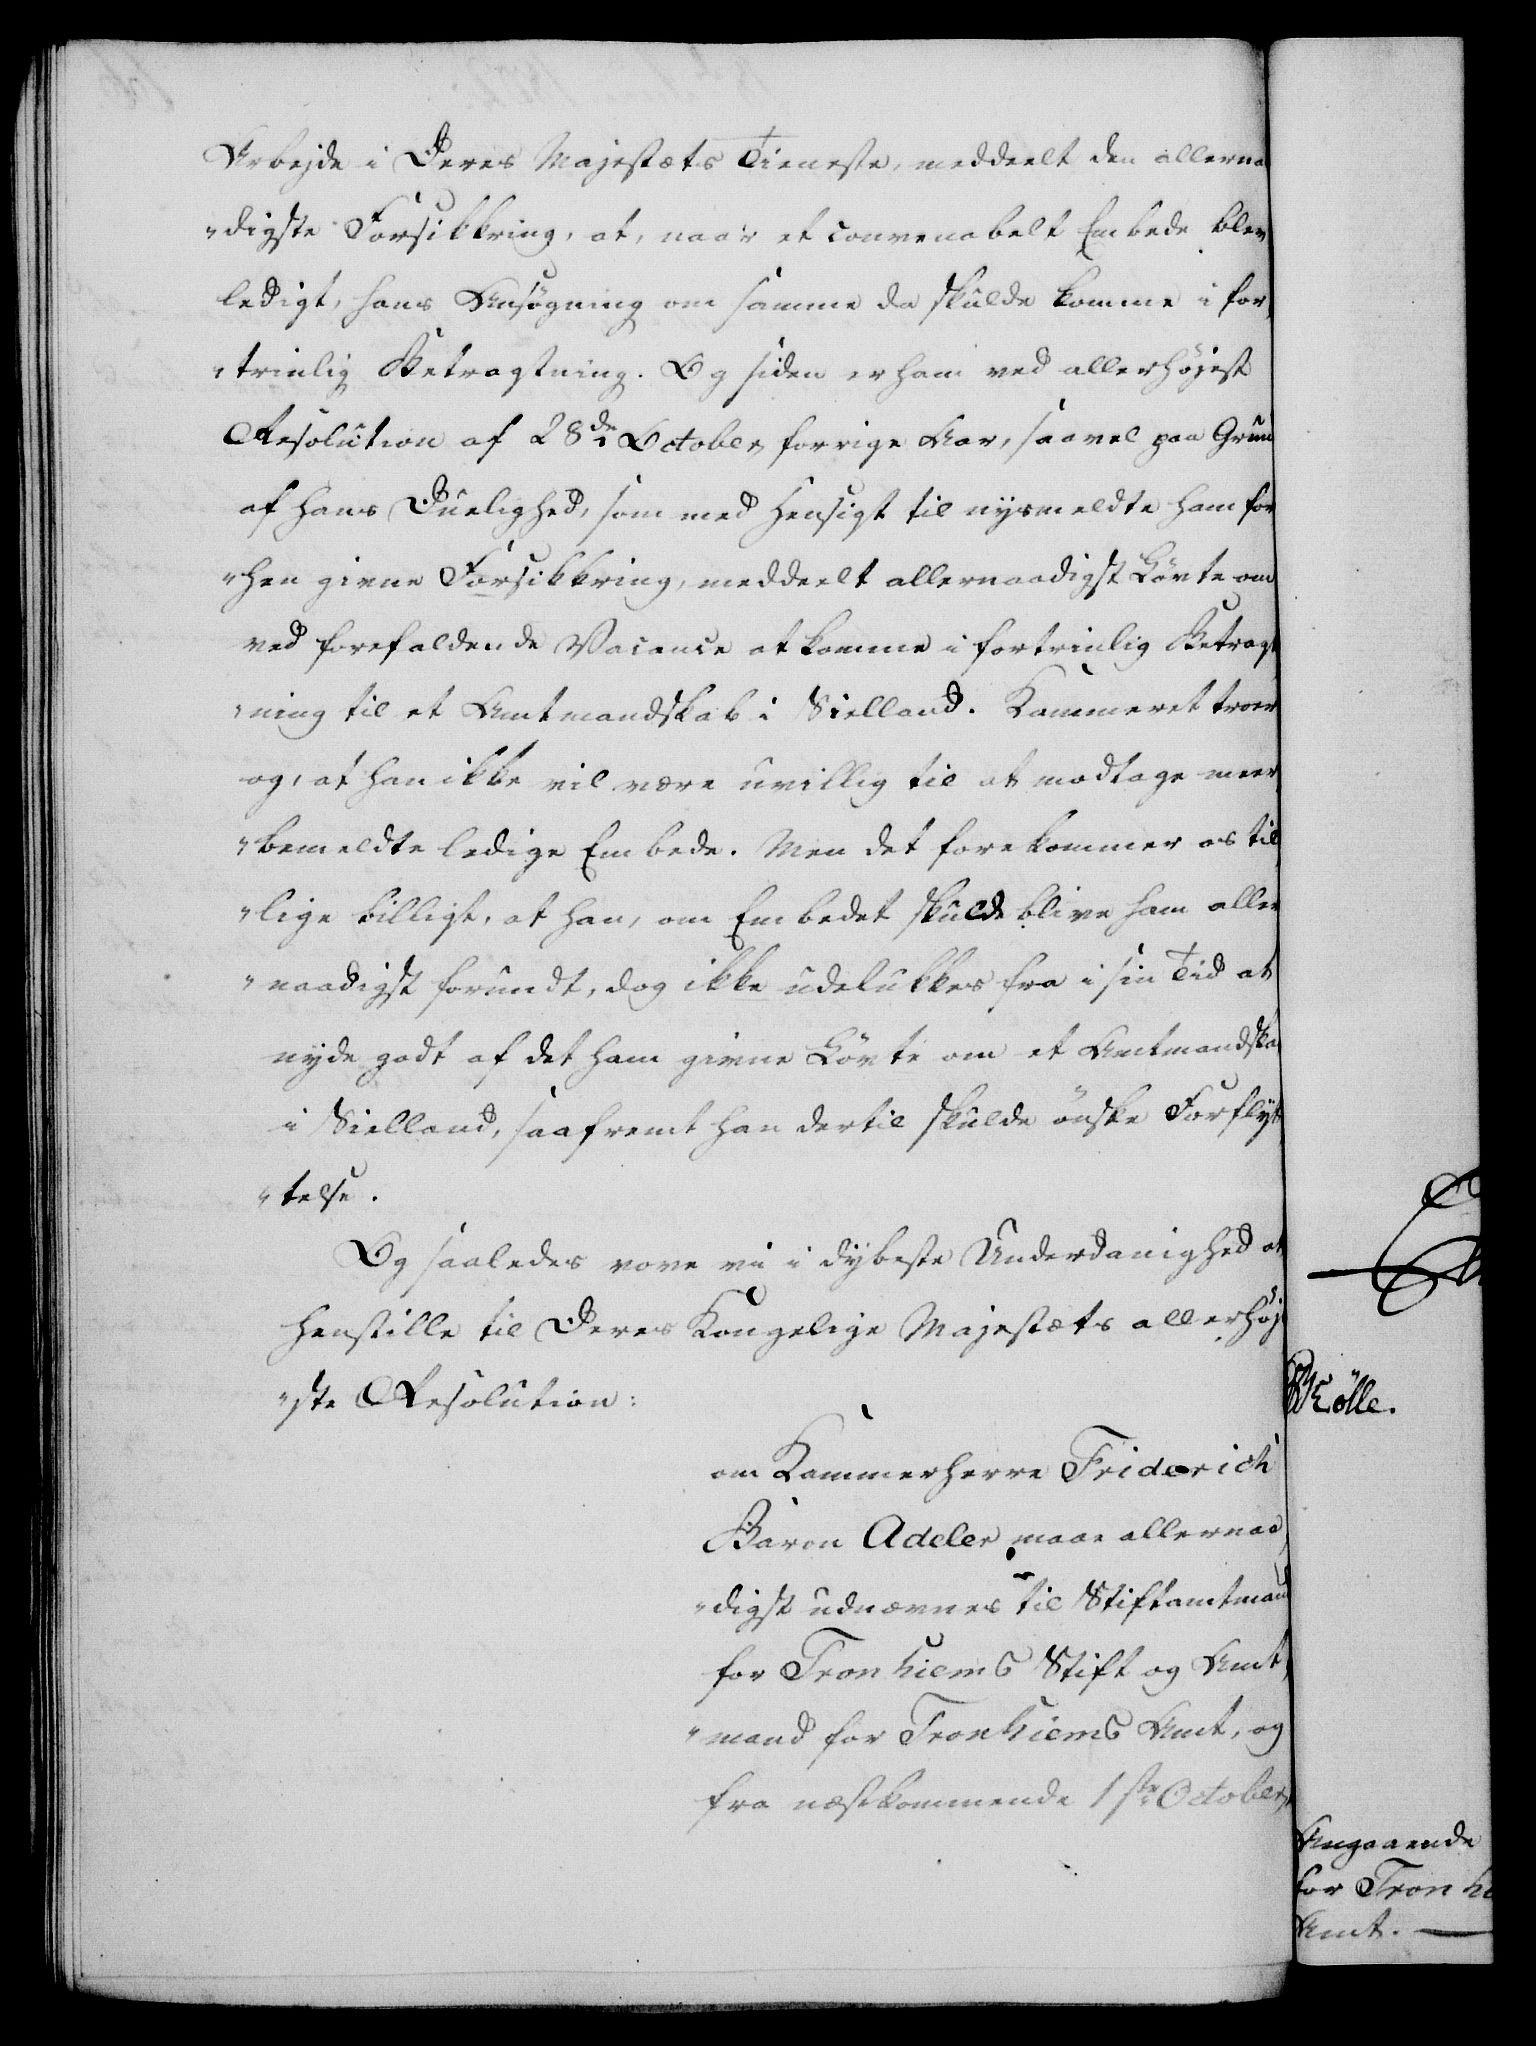 Arbejde i Deres Majestæts Tieneste, meddeelt den allerna
"digste Forsikkring, at, naar et convenabelt Embede blev
ledigt, hans Ansøgning om samme da skulde komme i for,
"trinlig Betragtning. Og siden er ham ved allerhøjest
Resolution af 28de October forrige Aar, saavel paa Grund
af hans Duelighed, som med Hensigt til nysmeldte ham for
"hen givne Forsikkring, meddeelt allernaadigst Løvte om
ved forefaldende Vacance at komme i fortrinlig Betragt
"ning til et Amtmandskab i Sielland. Kammeret troer
og, at han ikke vil være uvillig til at modtage meer,
"bemeldte ledige Embede. Men det forekommer os til
"lige billigt, at han, om Embedet skulde blive ham aller
"naadigst forundt, dog ikke udelukkes fra i sin Tid at
nyde godt af det ham givne Løvte om et Amtmandska
i Sielland, saafremt han dertil skulde ønske Forflyt
"telse.
Og saaledes vove vi i dybeste Underdanighed at
henstille til Deres Kongelige Majestæts allerhøj
"ste Resolution:
om Kammerherre Friderich
Baron Adeler maae allernaa,
"digst udnævnes til Stiftamtmand
for Tronhiems Stift og Amt,
"mand for Tronhiems Amt, og
fra næstkommende 1ste October,
Mölle.
Angaaende
for Tronhi
Amt.